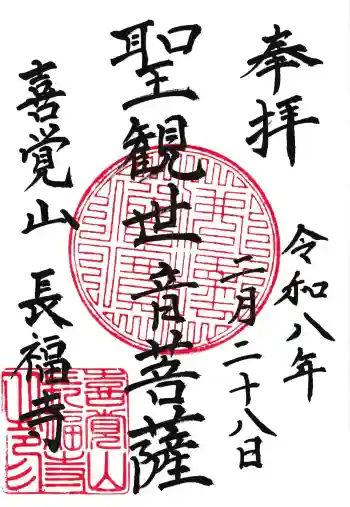 奉拝
令和八年
二月二十八日
聖観世音菩薩
喜覚山
長福寺
喜覚山
長福寺